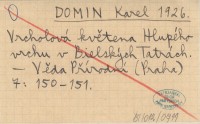 DOMIN Karel 1926.
Vrcholová květena Hlupého
vrchu v Bielských Tatrách.
— Vžda Přírodní (Praha)
7: 150-151.